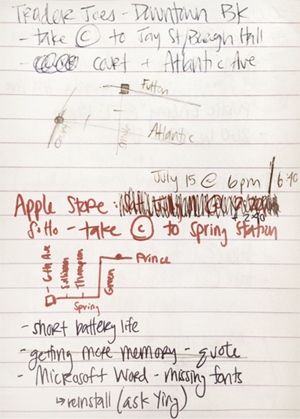 Trader Joes - Downtown Bk
- take C to Jay St/Borough Hall
- court + Atlantic Ave
Fulton
Atlantic
July 15 @ 6pm / 6:40
Apple Store -
SoHo - take C to Spring Station
6th Ave
Sullivan
Thompson
Green
Prince
Spring
- short battery life
- getting more memory - quote
- Microsoft Word - missing fonts
↳ reinstall (ask Ying)